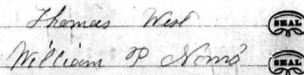 Thomas West SEAL
William P SEAL